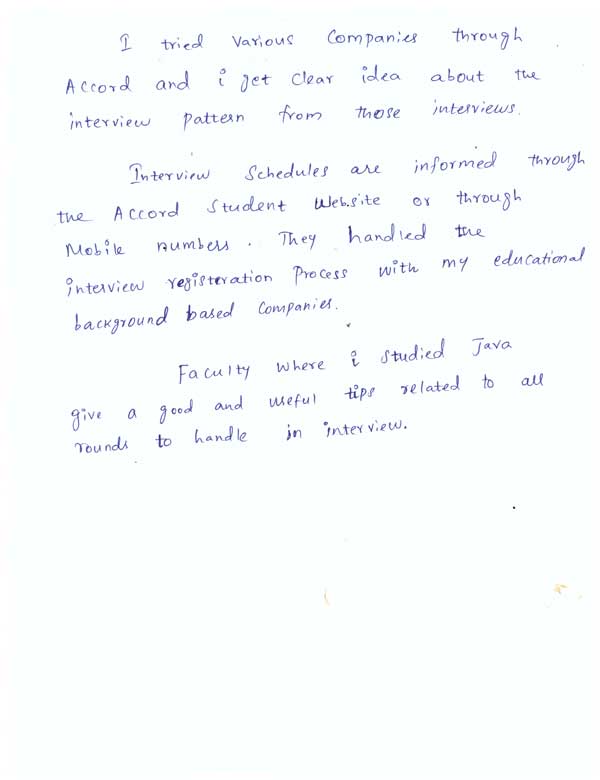 I tried Various Companies through
Accord and i get clear idea about the
interview pattern from those interviews.
Interview Schedules are informed through
the Accord Student Website or through
Mobile numbers. They handled the
interview registeration Process with my educational
background based Companies.
Faculty where i studied Java
give a good and useful tips related to all
rounds to handle in interview.